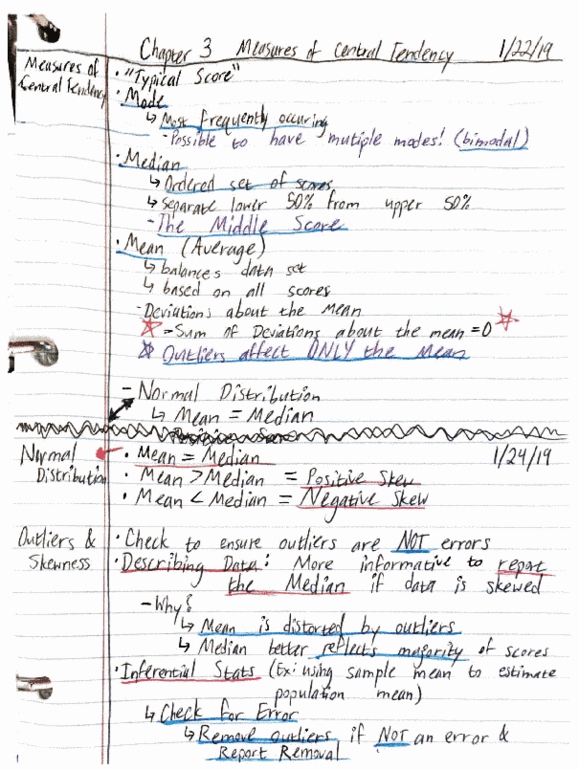 Chapter 3 Measures of Central Tendency 1/22/19
Measures of
Central Tendency
• "Typical Score"
• Mode
↳ Most frequently occuring
- Possible to have mutiple modes! (bimodal)
• Median
↳ Ordered set of scores
↳ Separate lower 50% from upper 50%
- The Middle Score
• Mean (Average)
↳ balances data set
↳ based on all scores
- Deviations about the Mean
☆ = Sum of Deviations about the mean = 0 ☆
☆ Outliers affect ONLY the Mean
- Normal Distribution
↳ Mean = Median
Normal
Distribution
• Mean = Median 1/24/19
• Mean > Median = Positive Skew
• Mean < Median = Negative Skew
Outliers &
Skewness
• Check to ensure outliers are NOT errors
• Describing Data: More informative to report
the Median if data is skewed
- Why?
↳ Mean is distorted by outliers
↳ Median better reflects majority of scores
• Inferential Stats (Ex: using sample mean to estimate
population mean)
↳ Check for Error
↳ Remove outliers if NOT an error &
Report Removal